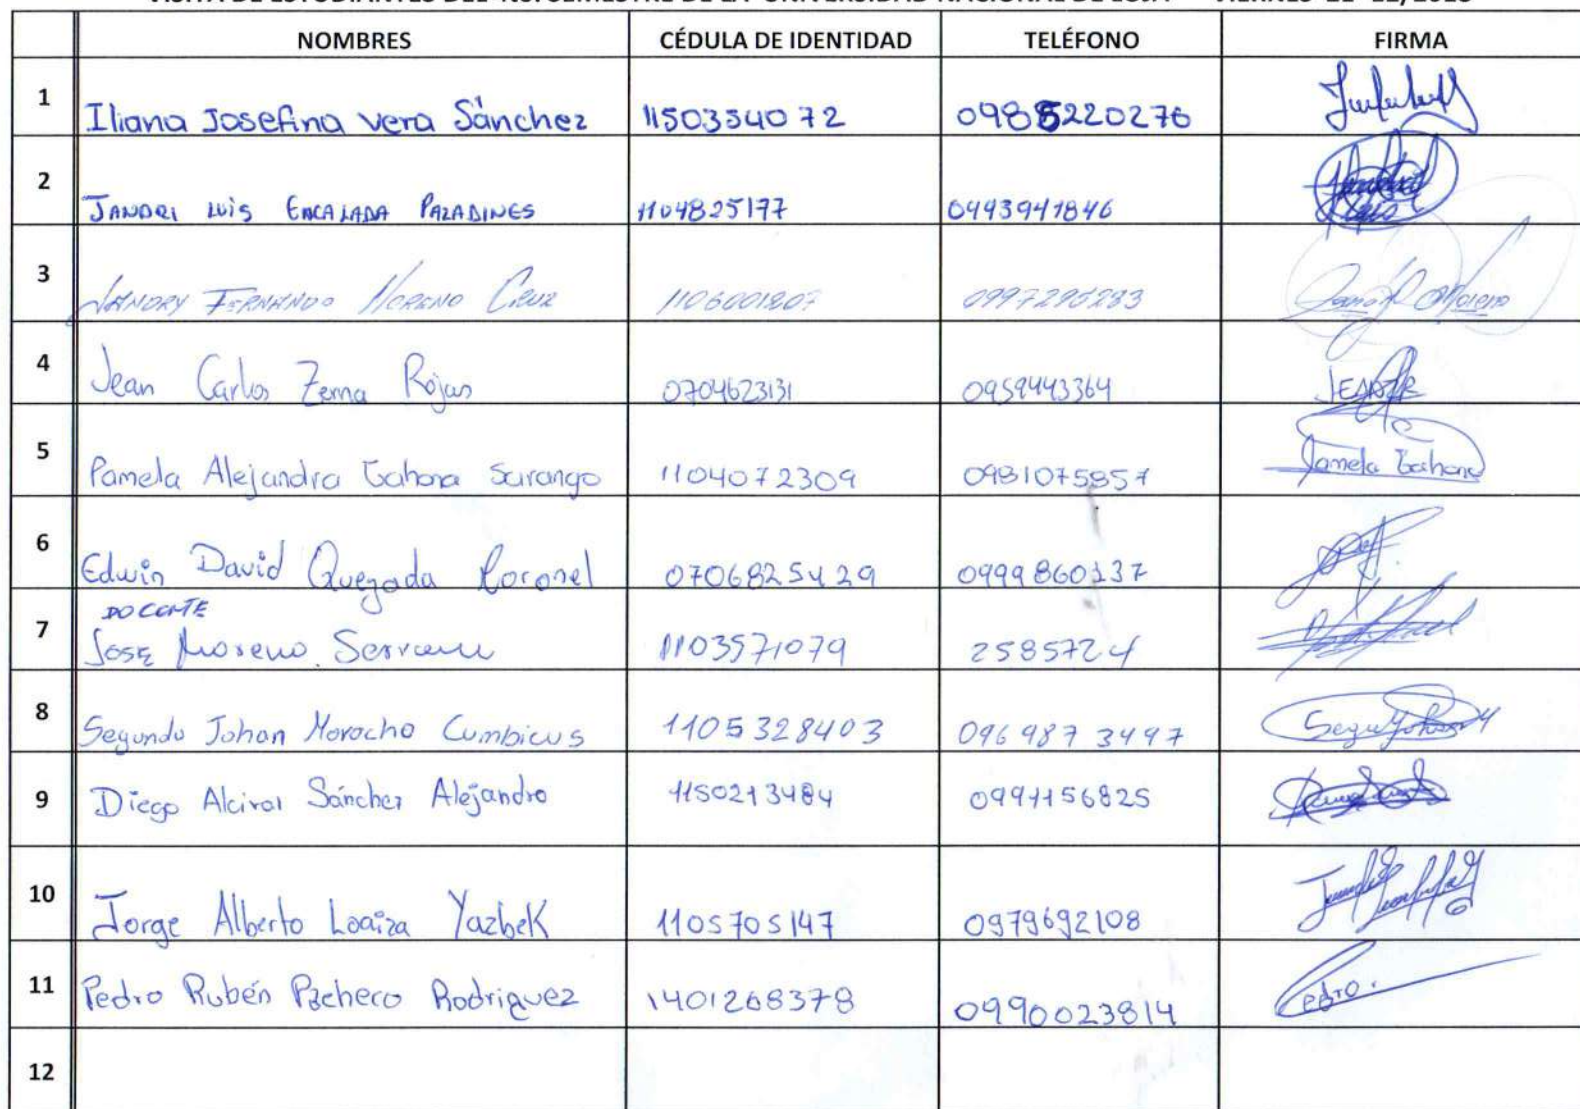 NOMBRES CÉDULA DE IDENTIDAD TELÉFONO FIRMA
1 Iliana Josefina Vera Sánchez 1150354072 0985220276
2 JANDRI LUIS ENCALADA PALADINES 1104825177 0993941846
3 JANDRY FERNANDO MORENO CRUZ 1106001807 0997295283
4 Jean Carlos Zerna Rojas 0704623131 0959443364 JEANZR
5 Pamela Alejandra Tahona Sarango 1104072309 0981075857 Pamela Tahona
6 Edwin David Quezada Coronel 0706825429 0999860137
DOCENTE
7 JOSE Moreno Serrano 1103571079 2585724
8 Segundo Johan Morocho Cumbicus 1105328403 096 987 3497
9 Diego Alcivar Sánchez Alejandro 1150213484 0991156825
10 Jorge Alberto Loaiza Yazbek 1105705147 0979692108
11 Pedro Rubén Pacheco Rodriguez 1401268378 0990023814 Pedro.
12